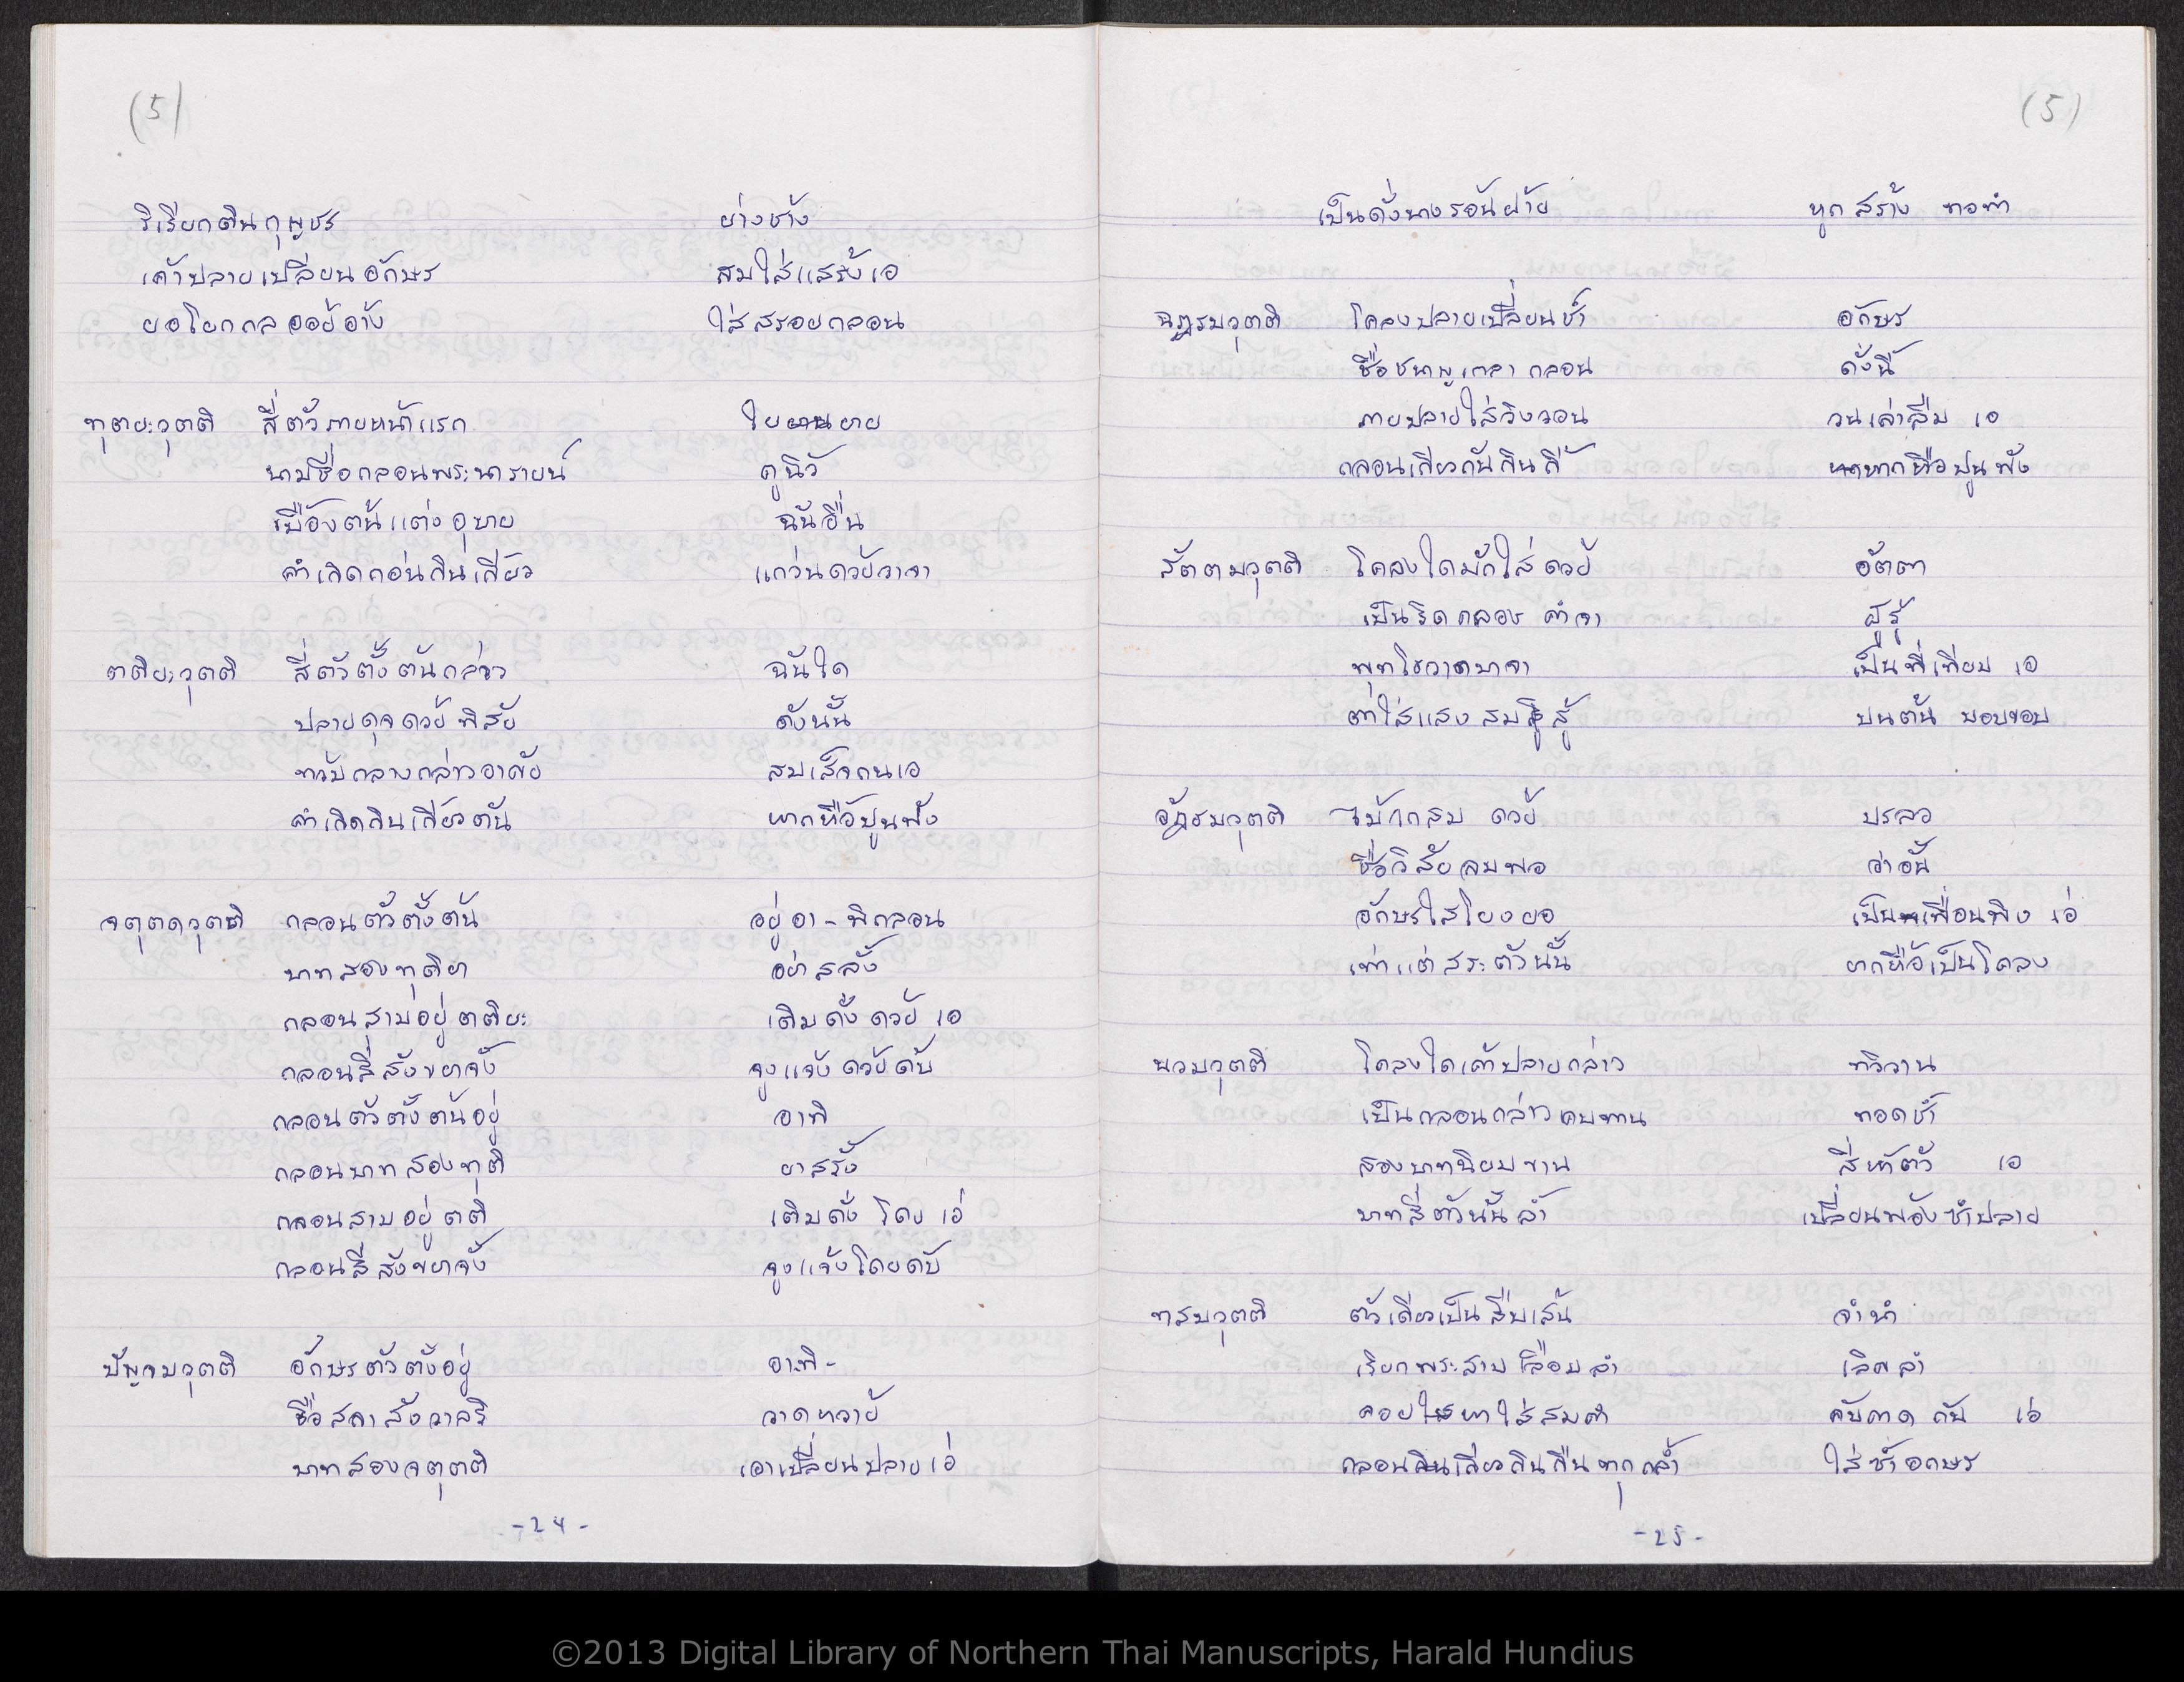 (5)
ริเรียกตีนกุญชร ย่างช้าง
เค้าปลายเปลี่ยนอักษร สมใส่แสร้งเอ
ยอโยกกลออย้อ้าง ใส่สรอยกลอน
ทุตยะวุตติ สี่ตัวภายหน้าแรก ใยยาย
นามชื่อกลอนพระนารายน์ ดูนิว้
เบื้องต้นแต่งอุบาย ฉันอื่น
คำเกิดก่อนกินเกี่ยว แกว่นดวย้วาจา
ตติยะวุตติ สี่ตัวตั้งต้นกล่าว ฉันใด
ปลายดุจดวย้พิสัย ดังนั้น
ทวับกลางกล่าวอาศัย สมเส็จกนเอ
คำเกิดกินเกี่ยวตัน หากหื้อปูนฟัง
จตุตถวุตติ กลอนตัวตั้งต้น อยู่อา-ทิกลอน
บาทสองทุติยา อย่าสลั้ง
กลอนสามอยู่ตติยะ เติมดั่งดวย้เอ
กลอนสี่สังขยาจั้ง จูงแจ้งดวย้ดับ
กลอนตัวตั้งต้นอยู่ อาทิ
กลอนบาทสองทุติ ยาสรั้ง
กลอนสามอยู่ตติ เติมดั่งโดยเอ่
กลอนสี่สังขยาจั้ง จูงแจ้งโดยดับ
ปัญจมวุตติ อักษรตัวตั้งอยู่ อาทิ-
ชื่อสคาสังวาลริ วาดหวาย้
บาทสองจตุตติ เอาเปลี่ยนปลายเอ่
-24-
(5)
เป็นดั่งนางรอนฝ้าย หูกสร้าง ทอทำ
ฉฏฐมวุตติ โคลงปลายเปลี่ยนซ้ำ อักษร
ชื่อชมพูเกลากลอน ดั่งนี้
ภายปลายใส่วิงวอน วนเล่าลืม เอ
กลอนเกียวกันกินกี้ หากหื้อปูนฟัง
สัตตมวุตติ โคลงใดมักใส่ดวย้ อัตตา
เป็นริดกลอง คำจา ผู้รู้
พุทโธวาดบาจา เป็นที่เทียบ เอ
ตาใส่แสงสมสู้ บนต้น บอบขอบ
อัฏธมวุตติ ไม้ไกสม ดวย้ บรลว
ชื่อวิสัยลมพอ ว่าอั้น
อักษรใส่โยงยอ เป็นเพื่อนพิง เอ่
เท่าแต่สระตัวนั้น หากหื้อเป็นโคลง
นวมวุตติ โคลงใดเค้าปลายกล่าว ทวิวาน
เป็นกลอนกล่าวคบทาน ทอดซ้ำ
สองบาทนิยมขาน สี่ห้าตัว เอ
บาทสี่ตัวนั้นล้ำ เปลี่ยนพลังซ้ำปลาย
ทสมวุตติ ตัวเดียวเป็นสืบเส้น จำนำ
เรียกพระสาบเลือมลำ เลิศลำ
คอยหาใส่สมคำ คับคาดกัน เอ่
กลอนเกียวกินกืนทุกกล้ำ ใส่ซ้ำอกษร
-25-
©2013 Digital Library of Northern Thai Manuscripts, Harald Hundius